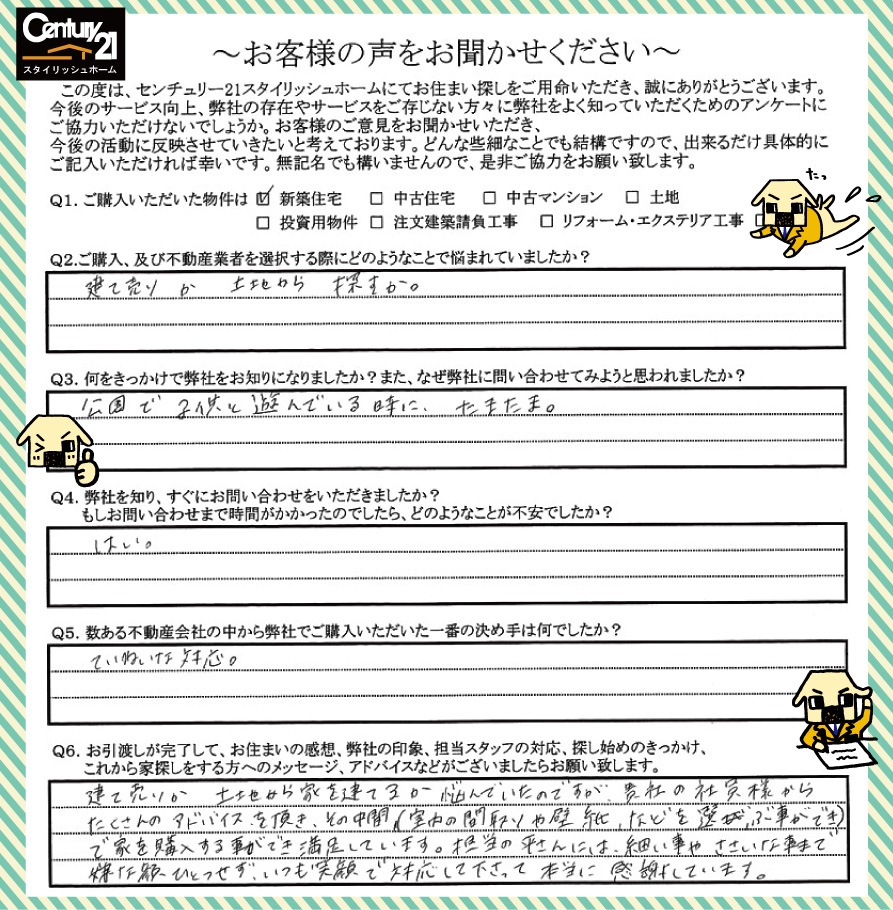 Century 21
スタイリッシュホーム
～お客様の声をお聞かせください～
この度は、センチュリー21スタイリッシュホームにてお住まい探しをご用命いただき、誠にありがとうございます。
今後のサービス向上、弊社の存在やサービスをご存じない方々に弊社をよく知っていただくためのアンケートに
ご協力いただけないでしょうか。お客様のご意見をお聞かせいただき、
今後の活動に反映させていきたいと考えております。どんな些細なことでも結構ですので、出来るだけ具体的に
ご記入いただければ幸いです。無記名でも構いませんので、是非ご協力をお願い致します。
たっ
Q1. ご購入いただいた物件は ☑ 新築住宅 □ 中古住宅 □ 中古マンション □ 土地
□ 投資用物件 □ 注文建築請負工事 □ リフォーム・エクステリア工事
Q2.ご購入、及び不動産業者を選択する際にどのようなことで悩まれていましたか？
建て売りか 土地から 探すか。
Q3. 何をきっかけで弊社をお知りになりましたか？また、なぜ弊社に問い合わせてみようと思われましたか？
公園で子供と遊んでいる時に、たまたま。
Q4. 弊社を知り、すぐにお問い合わせをいただきましたか？
もしお問い合わせまで時間がかかったのでしたら、どのようなことが不安でしたか？
はい。
Q5. 数ある不動産会社の中から弊社でご購入いただいた一番の決め手は何でしたか？
ていねいな対応。
Q6. お引渡しが完了して、お住まいの感想、弊社の印象、担当スタッフの対応、探し始めのきっかけ、
これから家探しをする方へのメッセージ、アドバイスなどがございましたらお願い致します。
建て売りか 土地から家を建てるか 悩んでいたのですが、貴社の社員様から
たくさんのアドバイスを頂き、その中間(室内の間取りや壁紙、などを選ぶ事ができ)
で家を購入する事ができ満足しています。担当の さんには、細い事や ささいな事まで
嫌な顔ひとつせず、いつも笑顔で対応して下さって 本当に 感謝しています。